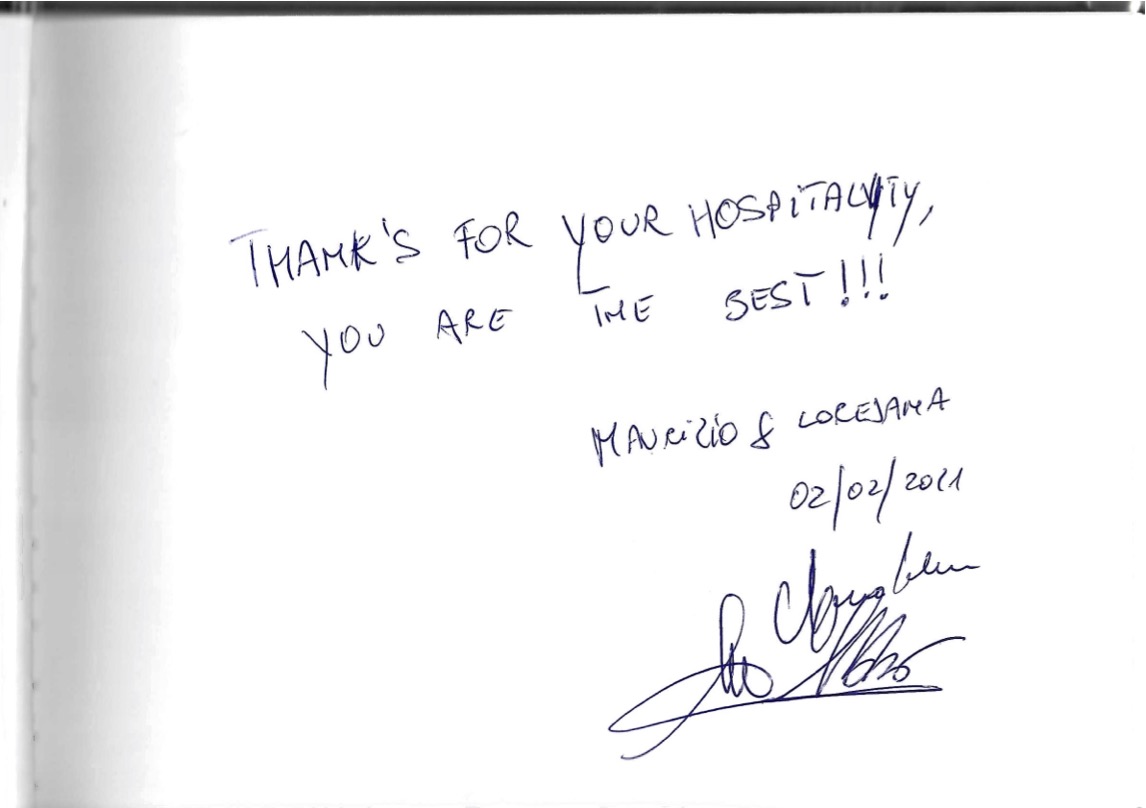 THANK'S FOR YOUR HOSPITALITY,
YOU ARE THE BEST!!!
MAURIZIO & LOREDANA
02/02/2011